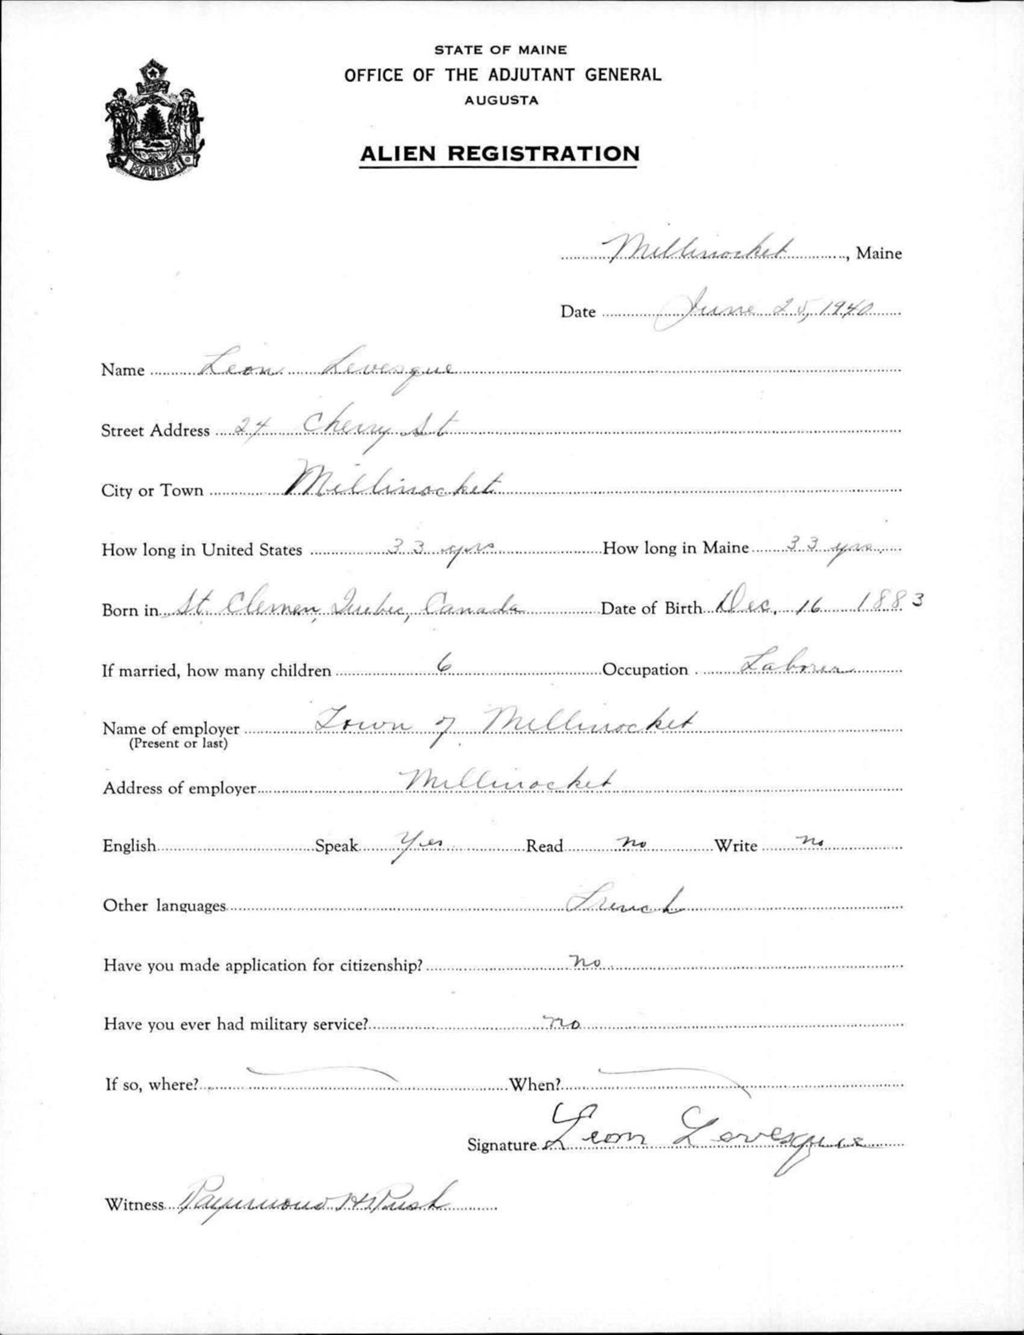 STATE OF MAINE
OFFICE OF THE ADJUTANT GENERAL
AUGUSTA
ALIEN REGISTRATION
MAINE
Millinocket, Maine
Date June 25, 1940
Name Leon Levesque
Street Address 24 Cherry St
City or Town Millinocket
How long in United States 33 yrs How long in Maine 33 yrs
Born in St. Clemen, Quebec, Canada Date of Birth Dec. 16 1883
If married, how many children 6 Occupation Laborer
Name of employer Town of Millinocket
(Present or last)
Address of employer Millinocket
English Speak Yes Read no Write no
Other languages French
Have you made application for citizenship? no
Have you ever had military service? no
If so, where? When?
Signature Leon Levesque
Witness Raymond H Rush